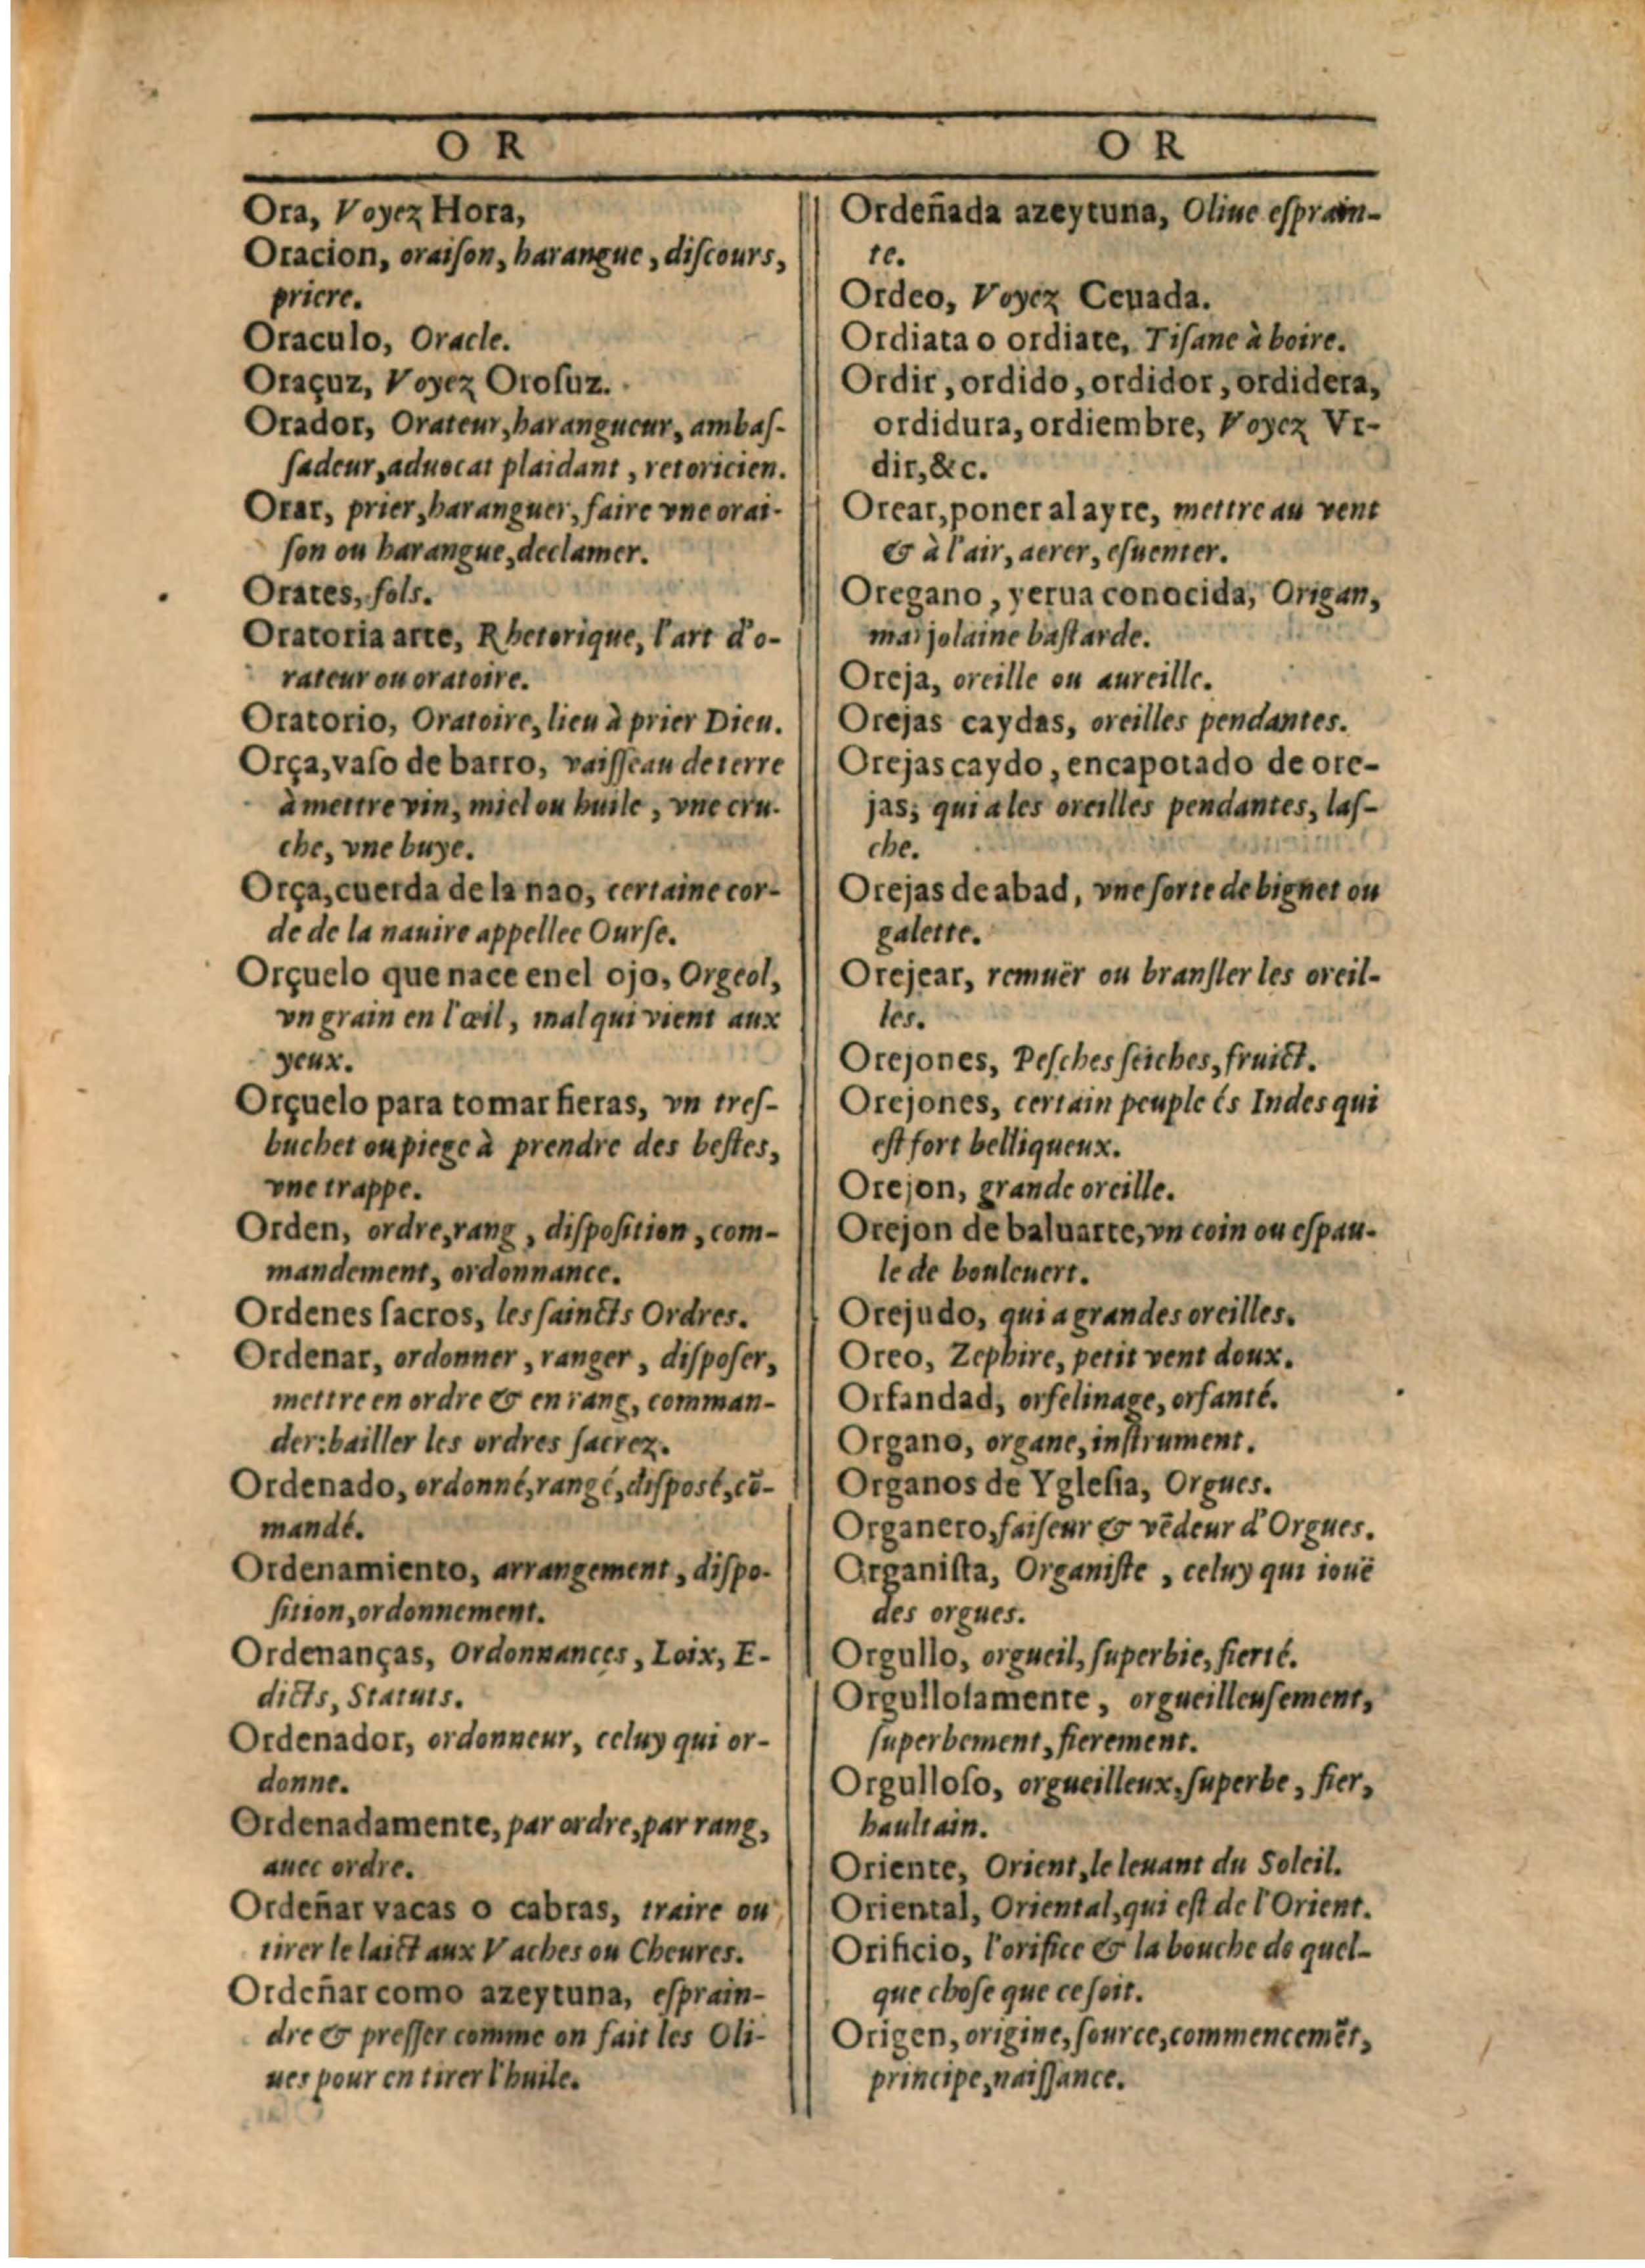 O R
Ora, Voyez Hora,
Oracion, oraiſon, harangue, diſcours,
priere.
Oraculo, Oracle.
Oraçuz, Voyez Oroſuz.
Orador, Orateur, harangueur, ambaſ-
ſadeur, aduocat plaidant, retoricien.
Orar, prier, haranguer, faire vne orai-
ſon ou harangue, declamer.
Orates, fols.
Oratoria arte, Rhetorique, l'art d'o-
rateur ou oratoire.
Oratorio, Oratoire, lieu à prier Dieu.
Orça, vaſo de barro, vaiſſeau de terre
à mettre vin, miel ou huile, vne cru-
che, vne buye.
Orça, cuerda de la nao, certaine cor-
de de la nauire appellee Ourſe.
Orçuelo que nace en el ojo, Orgeol,
vn grain en l'œil, mal qui vient aux
yeux.
Orçuelo para tomar fieras, vn treſ-
buchet ou piege à prendre des beſtes,
vne trappe.
Orden, ordre, rang, diſpoſition, com-
mandement, ordonnance.
Ordenes ſacros, les ſaincts Ordres.
Ordenar, ordonner, ranger, diſpoſer,
mettre en ordre & en rang, comman-
der: bailler les ordres ſacrez.
Ordenado, ordonné, rangé, diſposé, cõ-
mandé.
Ordenamiento, arrangement, diſpo-
ſition, ordonnement.
Ordenanças, Ordonnances, Loix, E-
dicts, Statuts.
Ordenador, ordonneur, celuy qui or-
donne.
Ordenadamente, par ordre, par rang,
auec ordre.
Ordeñar vacas o cabras, traire ou
tirer le laict aux Vaches ou Cheures.
Ordeñar como azeytuna, eſprain-
dre & preſſer comme on fait les Oli-
ues pour en tirer l'huile.
O R
Ordeñada azeytuna, Oliue eſprain-
te.
Ordeo, Voyez Ceuada.
Ordiata o ordiate, Tiſane à boire.
Ordir, ordido, ordidor, ordidera,
ordidura, ordiembre, Voyez Vr-
dir, &c.
Orear, poner al ayre, mettre au vent
& à l'air, aerer, eſuenter.
Oregano, yerua conocida, Origan,
marjolaine baſtarde.
Oreja, oreille ou aureille.
Orejas caydas, oreilles pendantes.
Orejas caydo, encapotado de ore-
jas, qui a les oreilles pendantes, laſ-
che.
Orejas de abad, vne ſorte de bignet ou
galette.
Orejear, remuër ou branſler les oreil-
les.
Orejones, Peſches ſeiches, fruict.
Orejones, certain peuple és Indes qui
eſt fort belliqueux.
Orejon, grande oreille.
Orejon de baluarte, vn coin ou eſpau-
le de bouleuert.
Orejudo, qui a grandes oreilles.
Oreo, Zephire, petit vent doux.
Orfandad, orfelinage, orfanté.
Organo, organe, inſtrument.
Organos de Ygleſia, Orgues.
Organero, faiſeur & vẽdeur d'Orgues.
Organiſta, Organiſte, celuy qui iouë
des orgues.
Orgullo, orgueil, ſuperbie, fierté.
Orgulloſamente, orgueilleuſement,
ſuperbement, fierement.
Orgulloſo, orgueilleux, ſuperbe, fier,
haultain.
Oriente, Orient, le leuant du Soleil.
Oriental, Oriental, qui eſt de l'Orient.
Orificio, l'orifice & la bouche de quel-
que choſe que ce ſoit.
Origen, origine, ſource, commencemẽt,
principe, naiſſance.